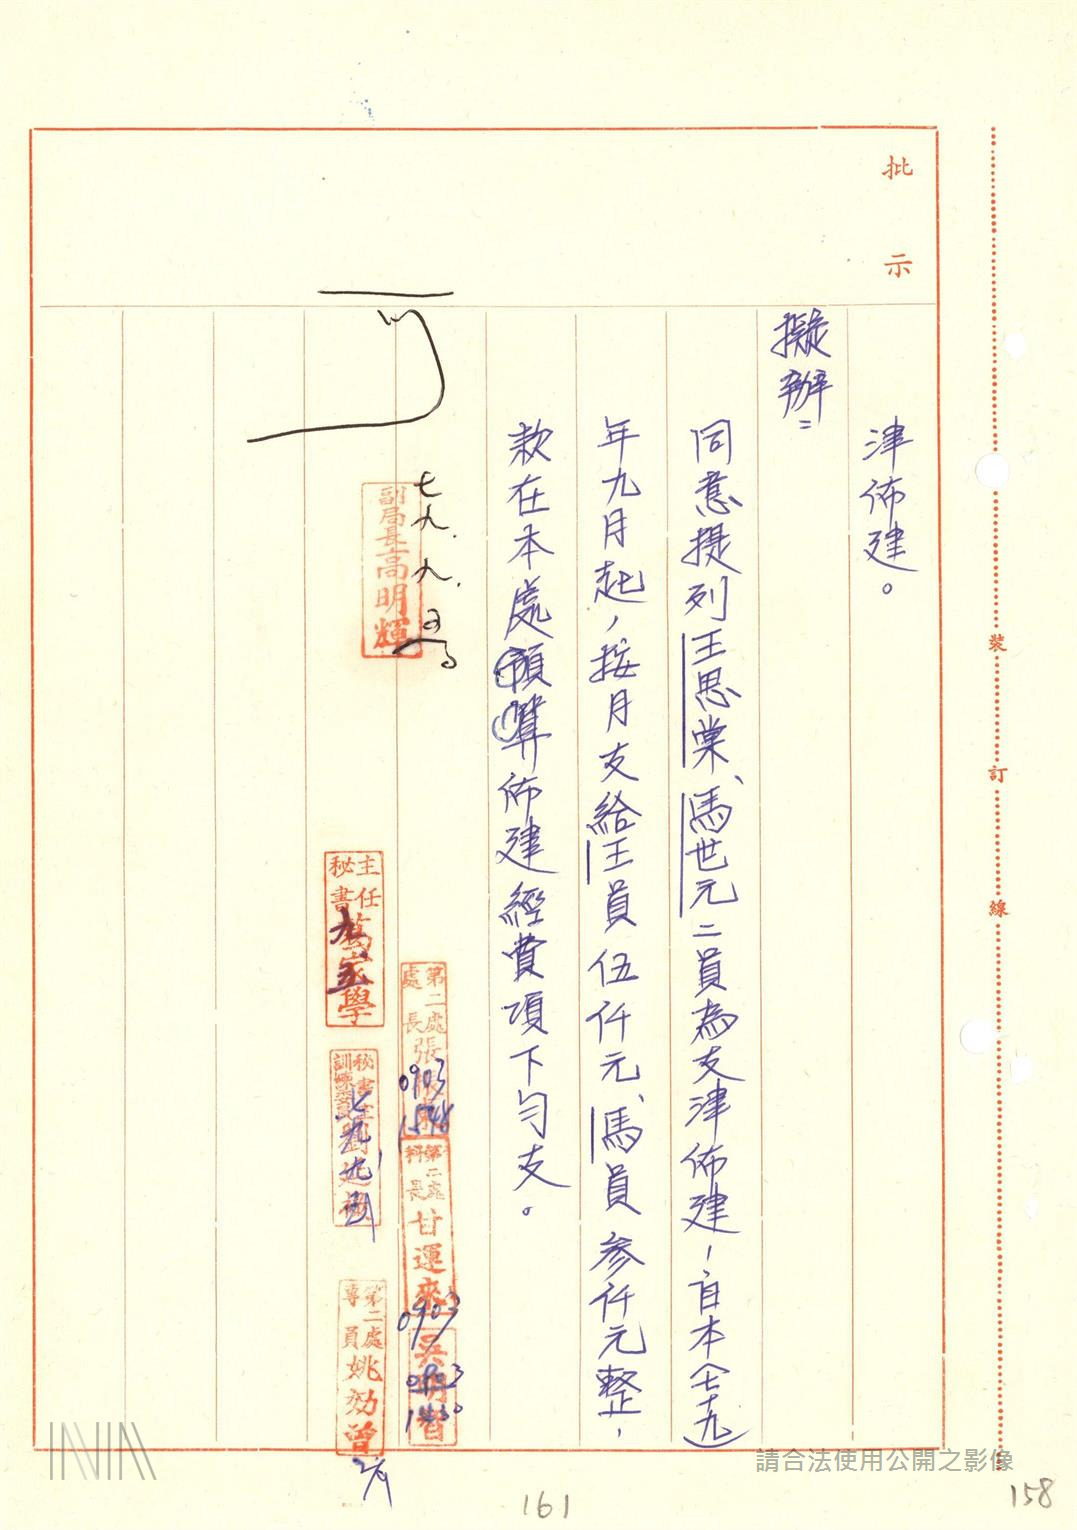 批示
津佈建。
擬辦：
同意提列王思棠、馬世元二員為支津佈建，自本(七十九)
年九月起，按月支給王員伍仟元、馬員參仟元整，
款在本處預算佈建經費項下勻支。
可
七九.九.五
副局長高明輝
主任秘書
第二處處長張
0903
1548
第二處科長甘運來
0903
吳
0903
1430
九、五
秘書室
劉
第二處專員姚効曾
裝
訂
線
請合法使用公開之影像
161
158